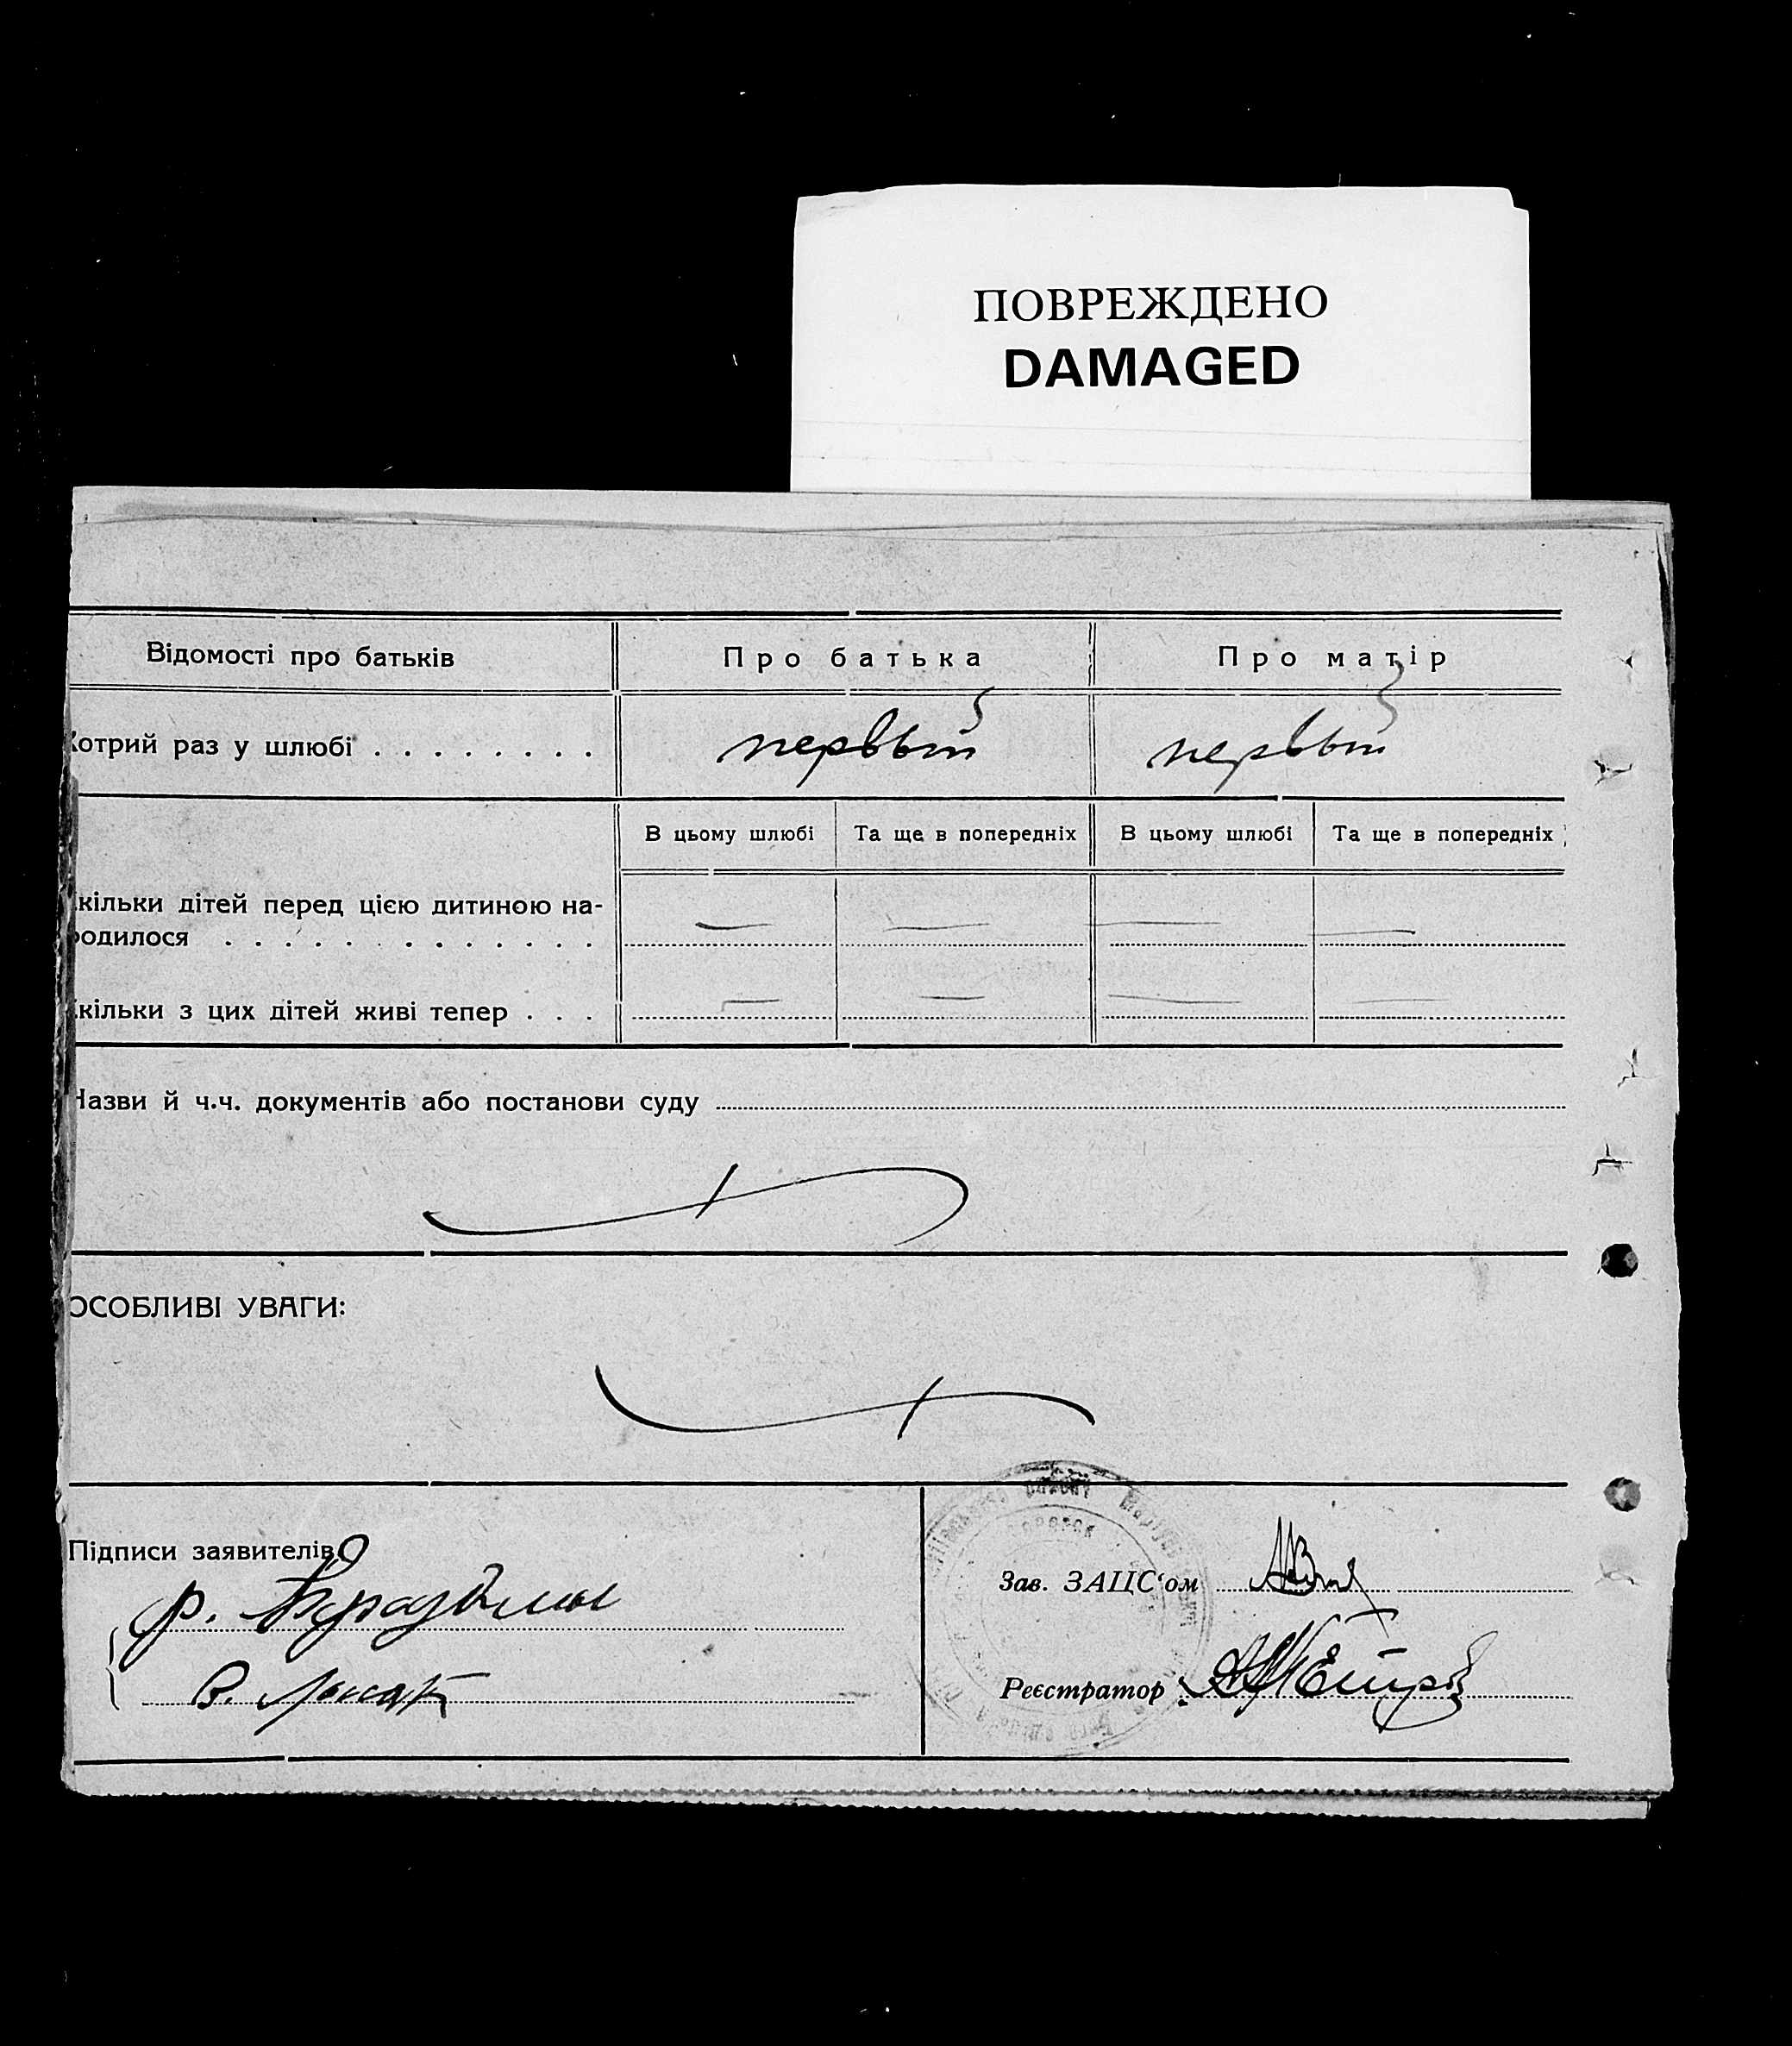 ПОВРЕЖДЕНО
DAMAGED
Відомості про батьків
Про батька
Про матір
Котрий раз у шлюбі
первый
первый
В цьому шлюбі
Та ще в попередніх
В цьому шлюбі
Та ще в попередніх
кільки дітей перед цією дитиною на-
родилося
кільки з цих дітей живі тепер
Назви й ч.ч. документів або постанови суду
ОСОБЛИВІ УВАГИ:
Підписи заявителів
Зав. ЗАЦС‘ом
Реєстратор